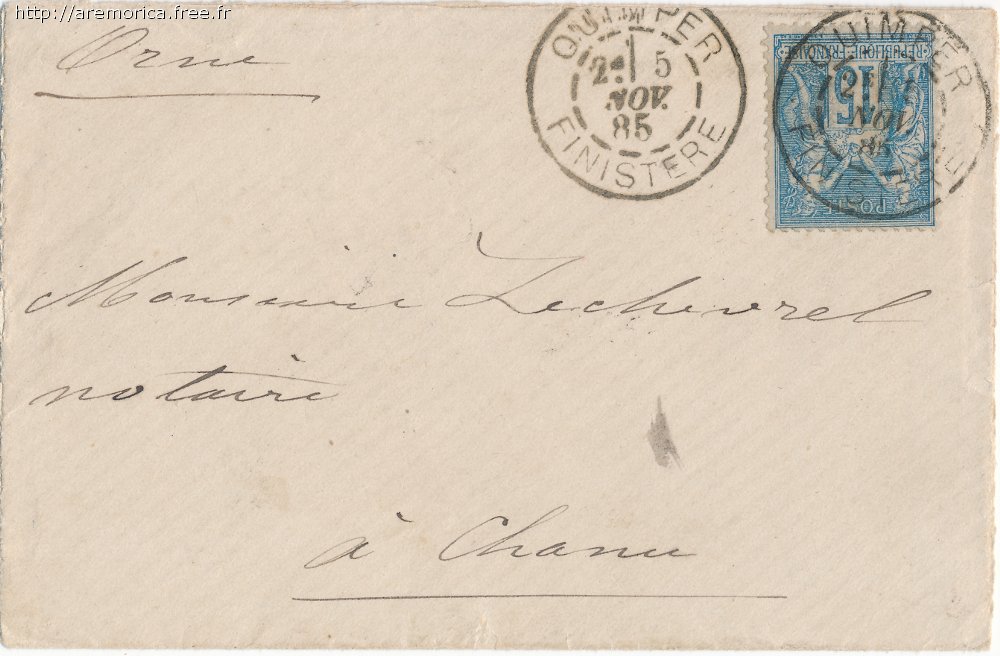 http://aremorica.free.fr
Orne
QUIMPER
2E 5
NOV.
85
FINISTERE
REPUBLIQUE FRANÇAISE
15
POSTE
QUIMPER
5
NOV.
85
FINISTERE
Monsieur Lechevrel
notaire
à Chanu